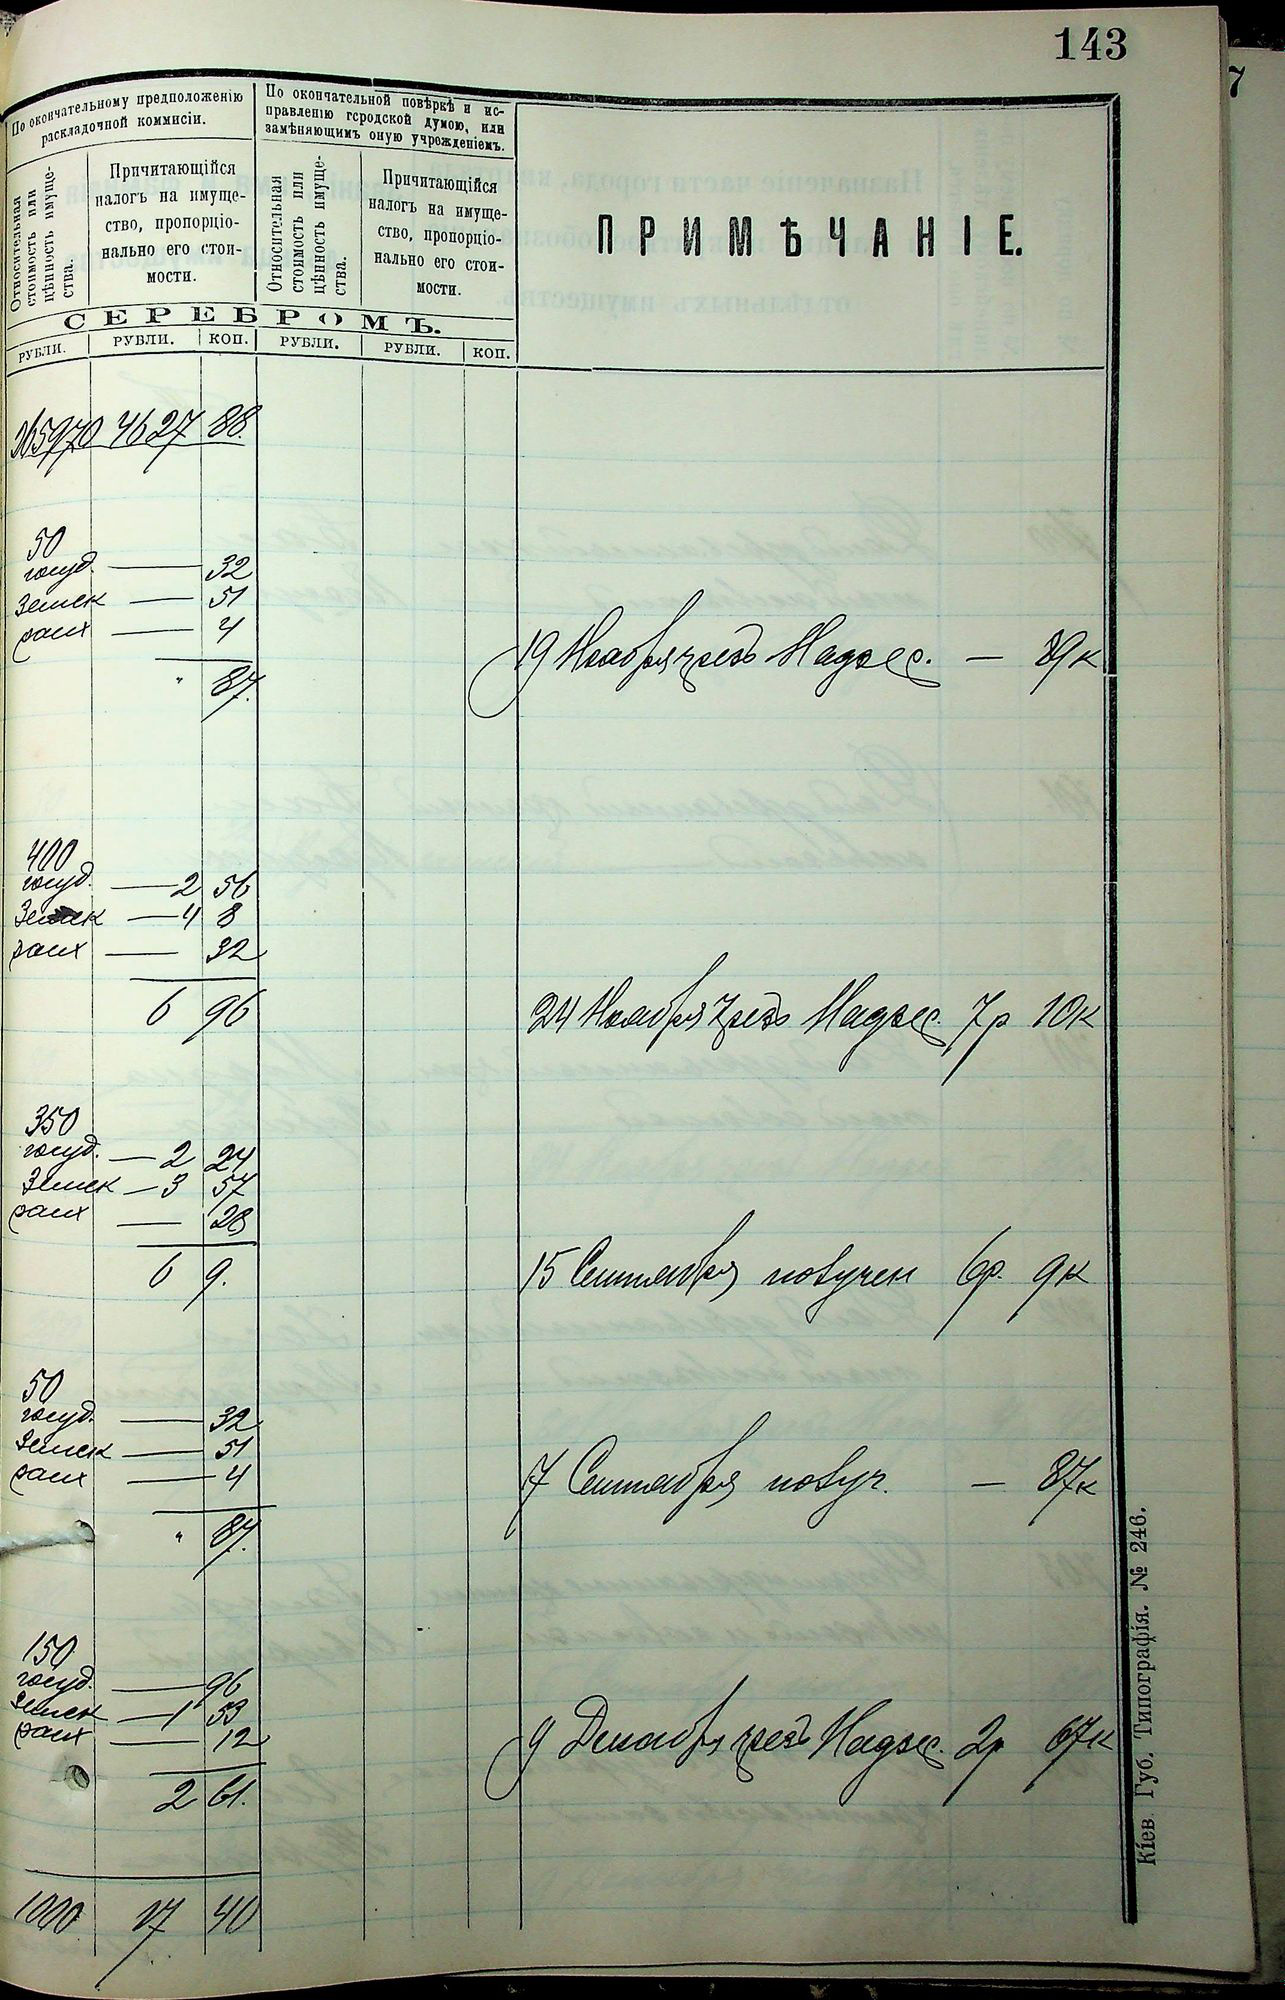 143
По окончательному предположенію
раскладочной коммисіи.
По окончательной повѣркѣ и ис-
правленію городской думою, или
замѣняющимъ оную учрежденіемъ.
Относительная
стоимость или
цѣнность имуще-
ства.
Причитающійся
налогъ на имуще-
ство, пропорціо-
нально его стои-
мости.
Относительная
стоимость или
цѣнность имуще-
ства.
Причитающійся
налогъ на имуще-
ство, пропорціо-
нально его стои-
мости.
ПРИМѢЧАНІЕ.
СЕРЕБРОМЪ.
РУБЛИ. РУБЛИ. КОП. РУБЛИ. РУБЛИ. КОП.
265970 4627 88.
50
госуд. — 32
Земск — 51
4
" 87.
19 Ноября чрезъ Надзес. — 89к
400
госуд. — 2 56
Земск — 4 8
— 32
6 96
24 Ноября чрезъ Надзес. 7р 10к
350
госуд. — 2 24
Земск — 3 57
— 28
6 9.
15 Сентября получен 6р. 9к
50
госуд. — 32
Земск — 51
— 4
" 87.
17 Сентября получ. — 87к
150
госуд. — 96
Земск — 1 53
— 12
2 61.
9 Декабря чрезъ Надзес. 2р 67к
1000 17 40
Кіев. Губ. Типографія. № 246.